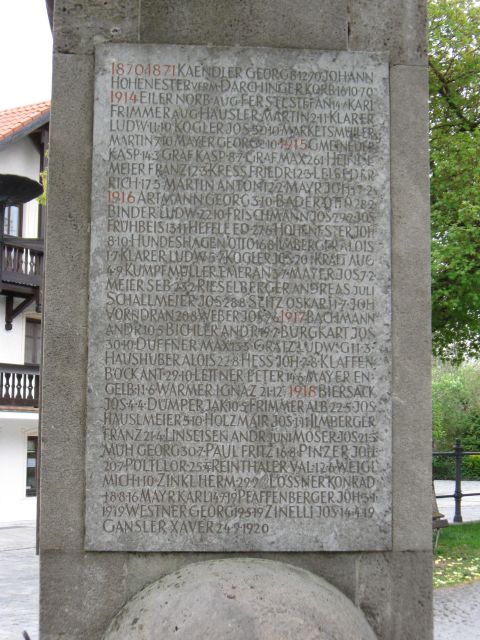 1870/1871 KAENDLER GEORG 8·12·70 JOHANN
HOHENESTER VERM· DARCHINGER KORB· 16·10·70
1914 EILER NORB· AUG· FERSTL STEFAN 14· KARL
FRIMMER AUG· HÄUSLER MARTIN 2·11· KLARER
LUDW· 11·10· KOGLER JOS· MARKETSMÜLLER
MARTIN MAYER GEORG 1915 GMEINEUER
KASP· 14·3· GRAF KASP· 8·7· GRAF MAX 26·1·
MEIER FRANZ 12·3· KRESS FRIEDR· 12·3·
RICH· 17·5· MARTIN ANTON 12·2· MAYR JOH·
1916 ARTMANN GEORG 3·10· BADER OTH·
BINDER LUDW· 22·10· FRISCHMANN JOS· 29·2· JOS·
FRÜHBEIS 13·1· HEFELE ED· 27·6· HOHENESTER JOH·
8·10· HUNDESHAGEN OTTO 16·8· ILMBERGER ALOIS
KLARER LUDW· KOGLER JOS· KRAFT AUG·
4·9· KUMPFMÜLLER EMERAN MAYER JOS· 7·2·
MEIER SEB· 23·2· RIESELBERGER ANDREAS JULI
SCHALLMEIER JOS· 28·8· SEITZ OSKAR JOH·
VORNDRAN 20·8· WEBER JOS· 1917 BACHMANN
ANDR· 10·5· BICHLER ANDR· BURGKART JOS·
30·10· DUFFNER MAX GRATZL LUDW·
HAUSHUBER ALOIS 22·8· HESS JOH· KLAFFEN-
BÖCK ANT· 29·10· LEITNER PETER 14·6· MAYER EN-
GELB· 11·6· WARMER IGNAZ 21·12· 1918 BIERSACK
JOS· 4·4· DUMPER JAK· 10·5· FRIMMER ALB· 22·5· JOS·
HÄUSLMEIER 5·10· HOLZMAIR JOS· ILMBERGER
FRANZ 21·4· LINSEISEN ANDR· JUNI MOSER JOS· 21·5·
MÜH GEORG 30·7· PAUL FRITZ 16·8· PINZER JOH·
20·7· PÖLTL LOR· 25·4· REINTHALER VAL· 12·6· WEIGL
MICH· 1·10· ZINKL HERM· 29·9· LOSSNER KONRAD
18·8·16 MAYR KARL 14·7·19 PFAFFENBERGER JOH· 5·1·
1919 WESTNER GEORG 19·5·19 ZINELLI JOS· 14·4·19
GANSLER XAVER 24·9·1920